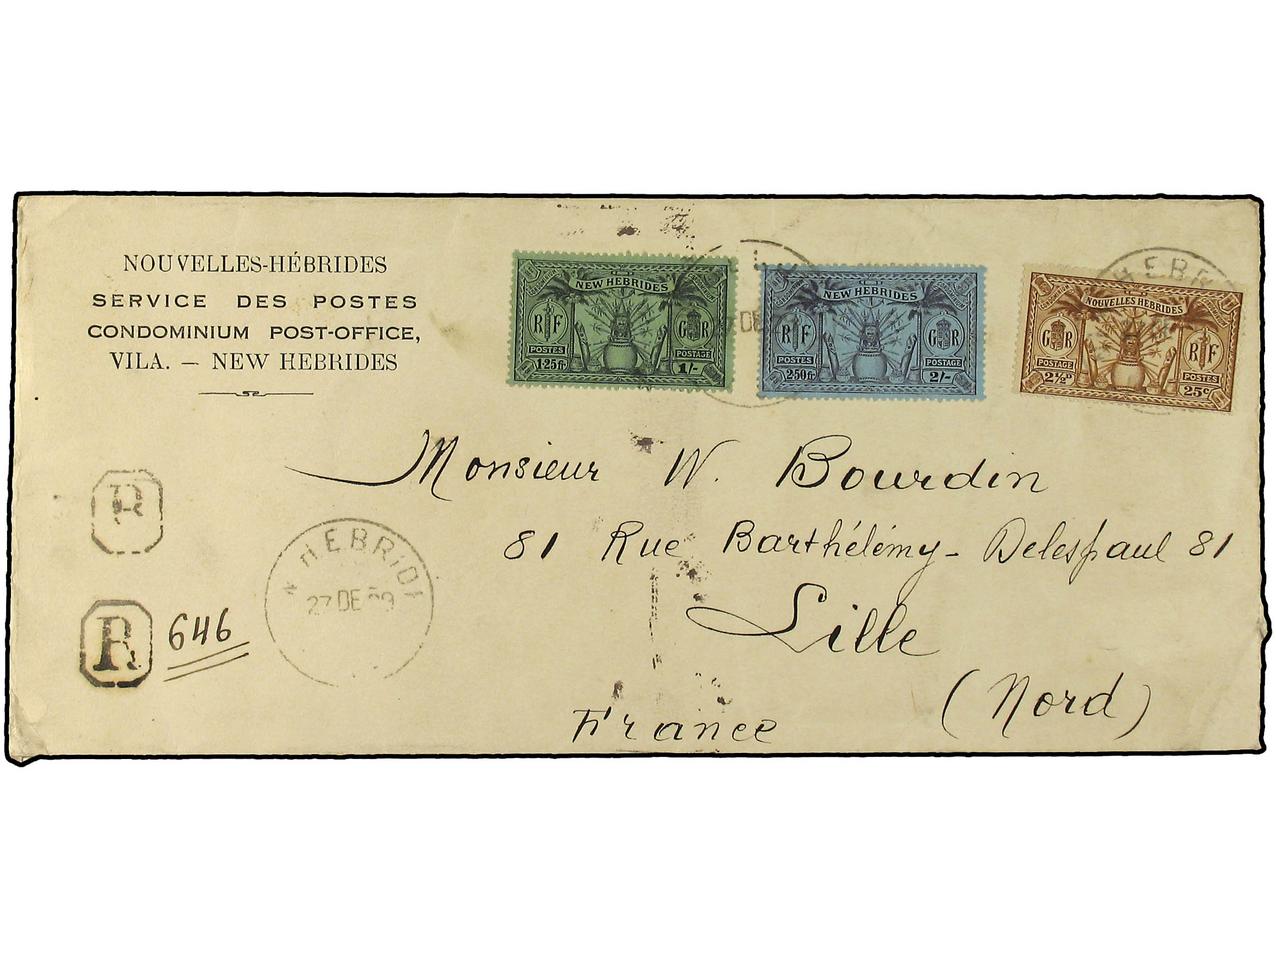 NOUVELLES-HÉBRIDES
SERVICE DES POSTES
CONDOMINIUM POST-OFFICE,
VILA. — NEW HEBRIDES
NEW HEBRIDES
R F
G R
POSTES
POSTAGE
1·25fr
1/-
NEW HEBRIDES
R F
G R
POSTES
POSTAGE
2·50fr
2/-
HEBR
NOUVELLES HÉBRIDES
G R
R F
POSTAGE
POSTES
2½d
25c
Monsieur W. Bourdin
81 Rue Barthélémy-Delespaul 81
Lille
(Nord)
France
R
R
646
HEBRID
27 DE 29